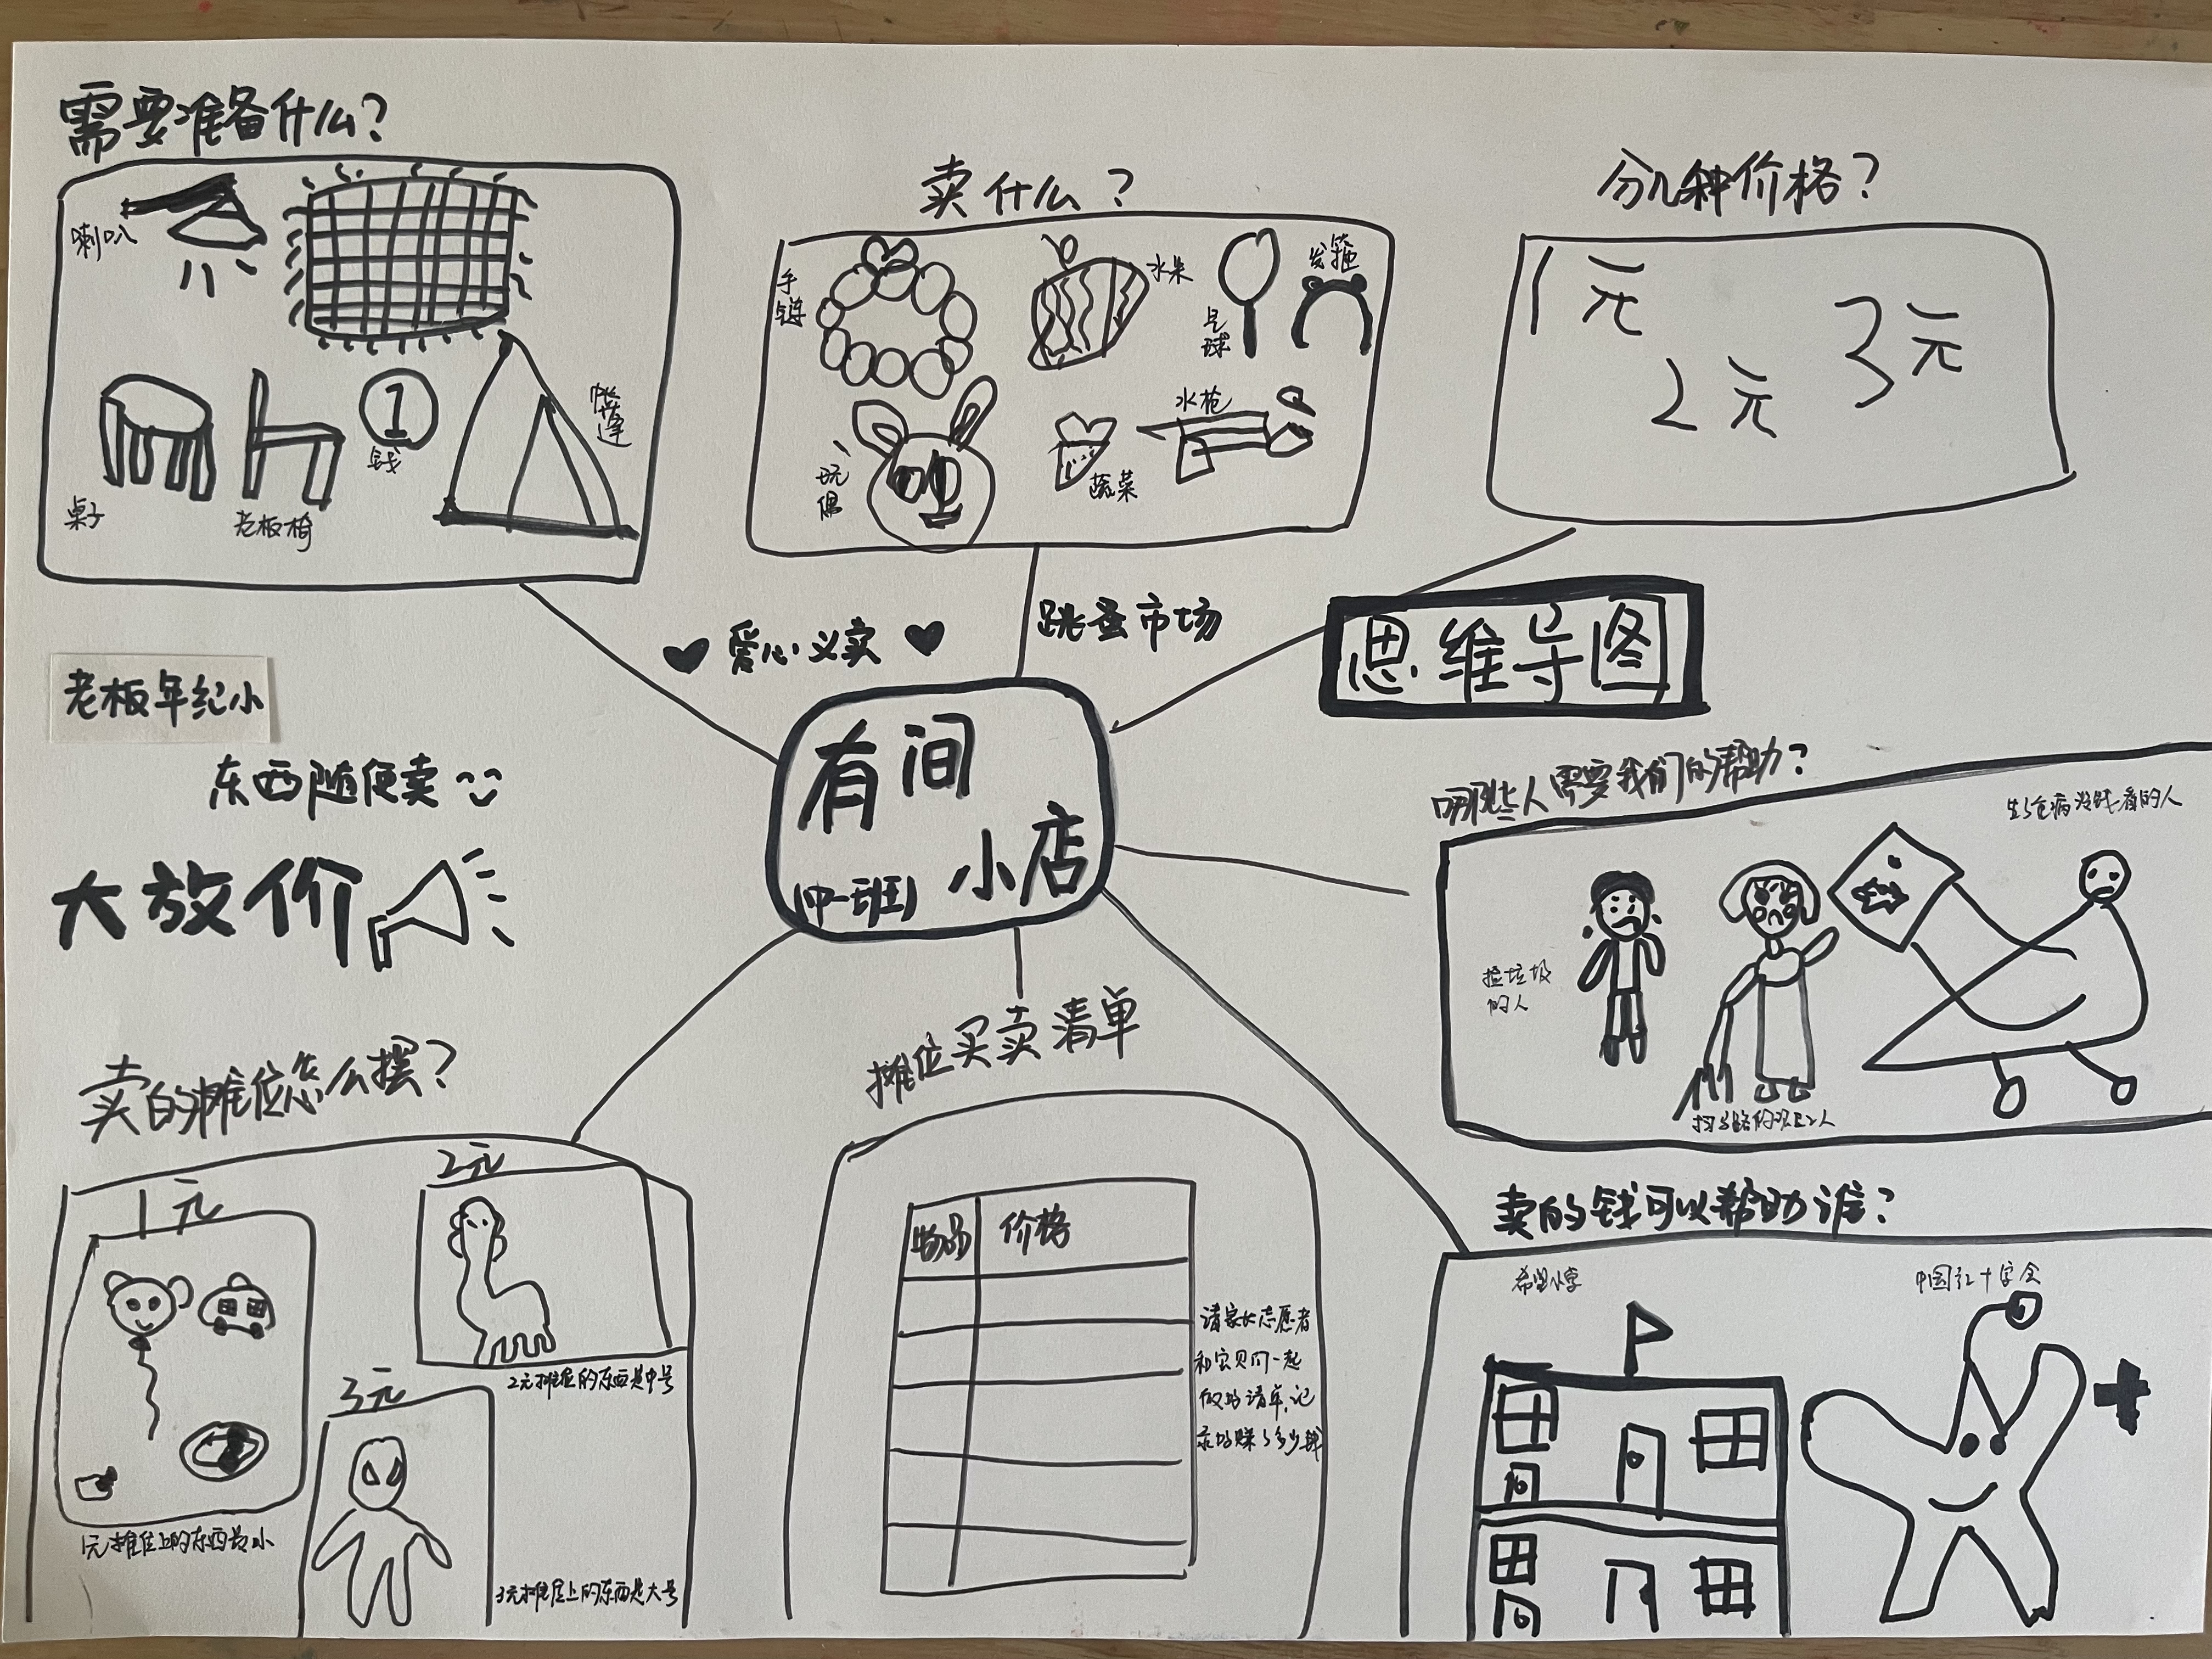 需要准备什么？
喇叭
桌子
老板椅
1
钱
帐篷
卖什么？
手链
水果
气球
发箍
玩偶
蔬菜
水枪
分几种价格？
1元
2元
3元
爱心义卖
跳蚤市场
思维导图
有间
小店
(中一班)
老板年纪小
东西随便卖
大放价
哪些人需要我们的帮助？
捡垃圾
的人
扫马路的环卫工人
生了危病没钱看的人
卖的摊位怎么摆？
1元
1元摊位上的东西最小
2元
2元摊位的东西是中号
3元
3元摊位上的东西是大号
摊位买卖清单
物品
价格
请家长志愿者
和宝贝们一起
做好清单,记
录好赚了多少钱
卖的钱可以帮助谁？
希望小学
中国红十字会